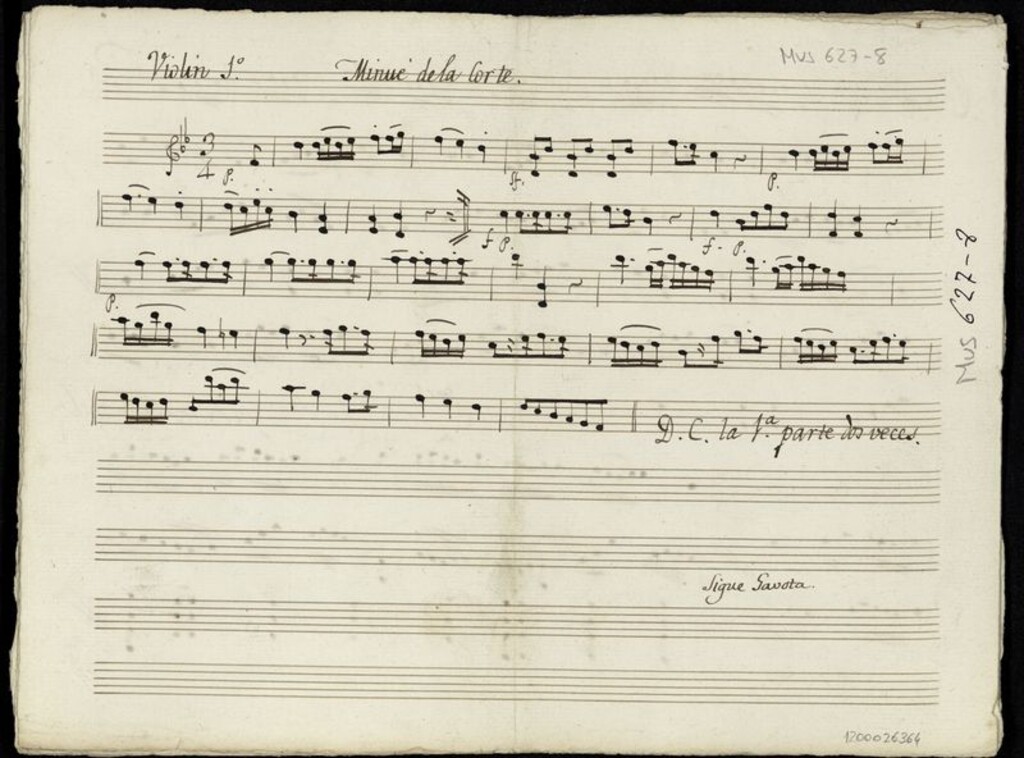 Violin 1º Minué de la Corte. MUS 627-8
3
4
P. sf. P.
f P. f. P.
MUS 627-8
P.
D. C. la 1.ª parte dos veces.
Sigue Gavota.
1200026364